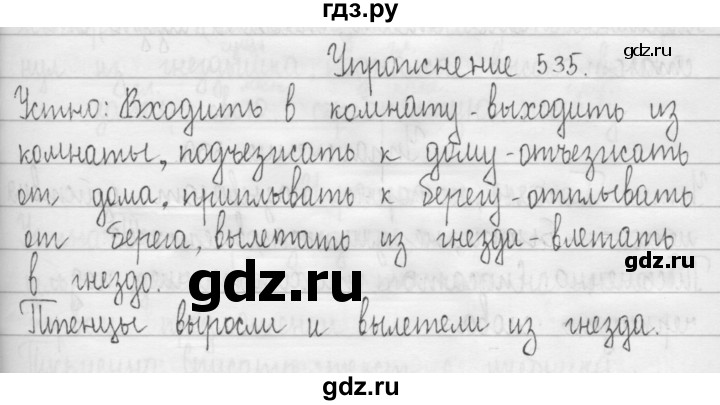 гдз.ру
gdz.ru
Упражнение 535.
Устно: Входить в комнату - выходить из
комнаты, подъезжать к дому - отъезжать
от дома, приплывать к берегу - отплывать
от берега, вылетать из гнезда - влетать
gdz.ru
в гнездо.
gdz.ru
Птенцы выросли и вылетели из гнезда.
gdz.ru